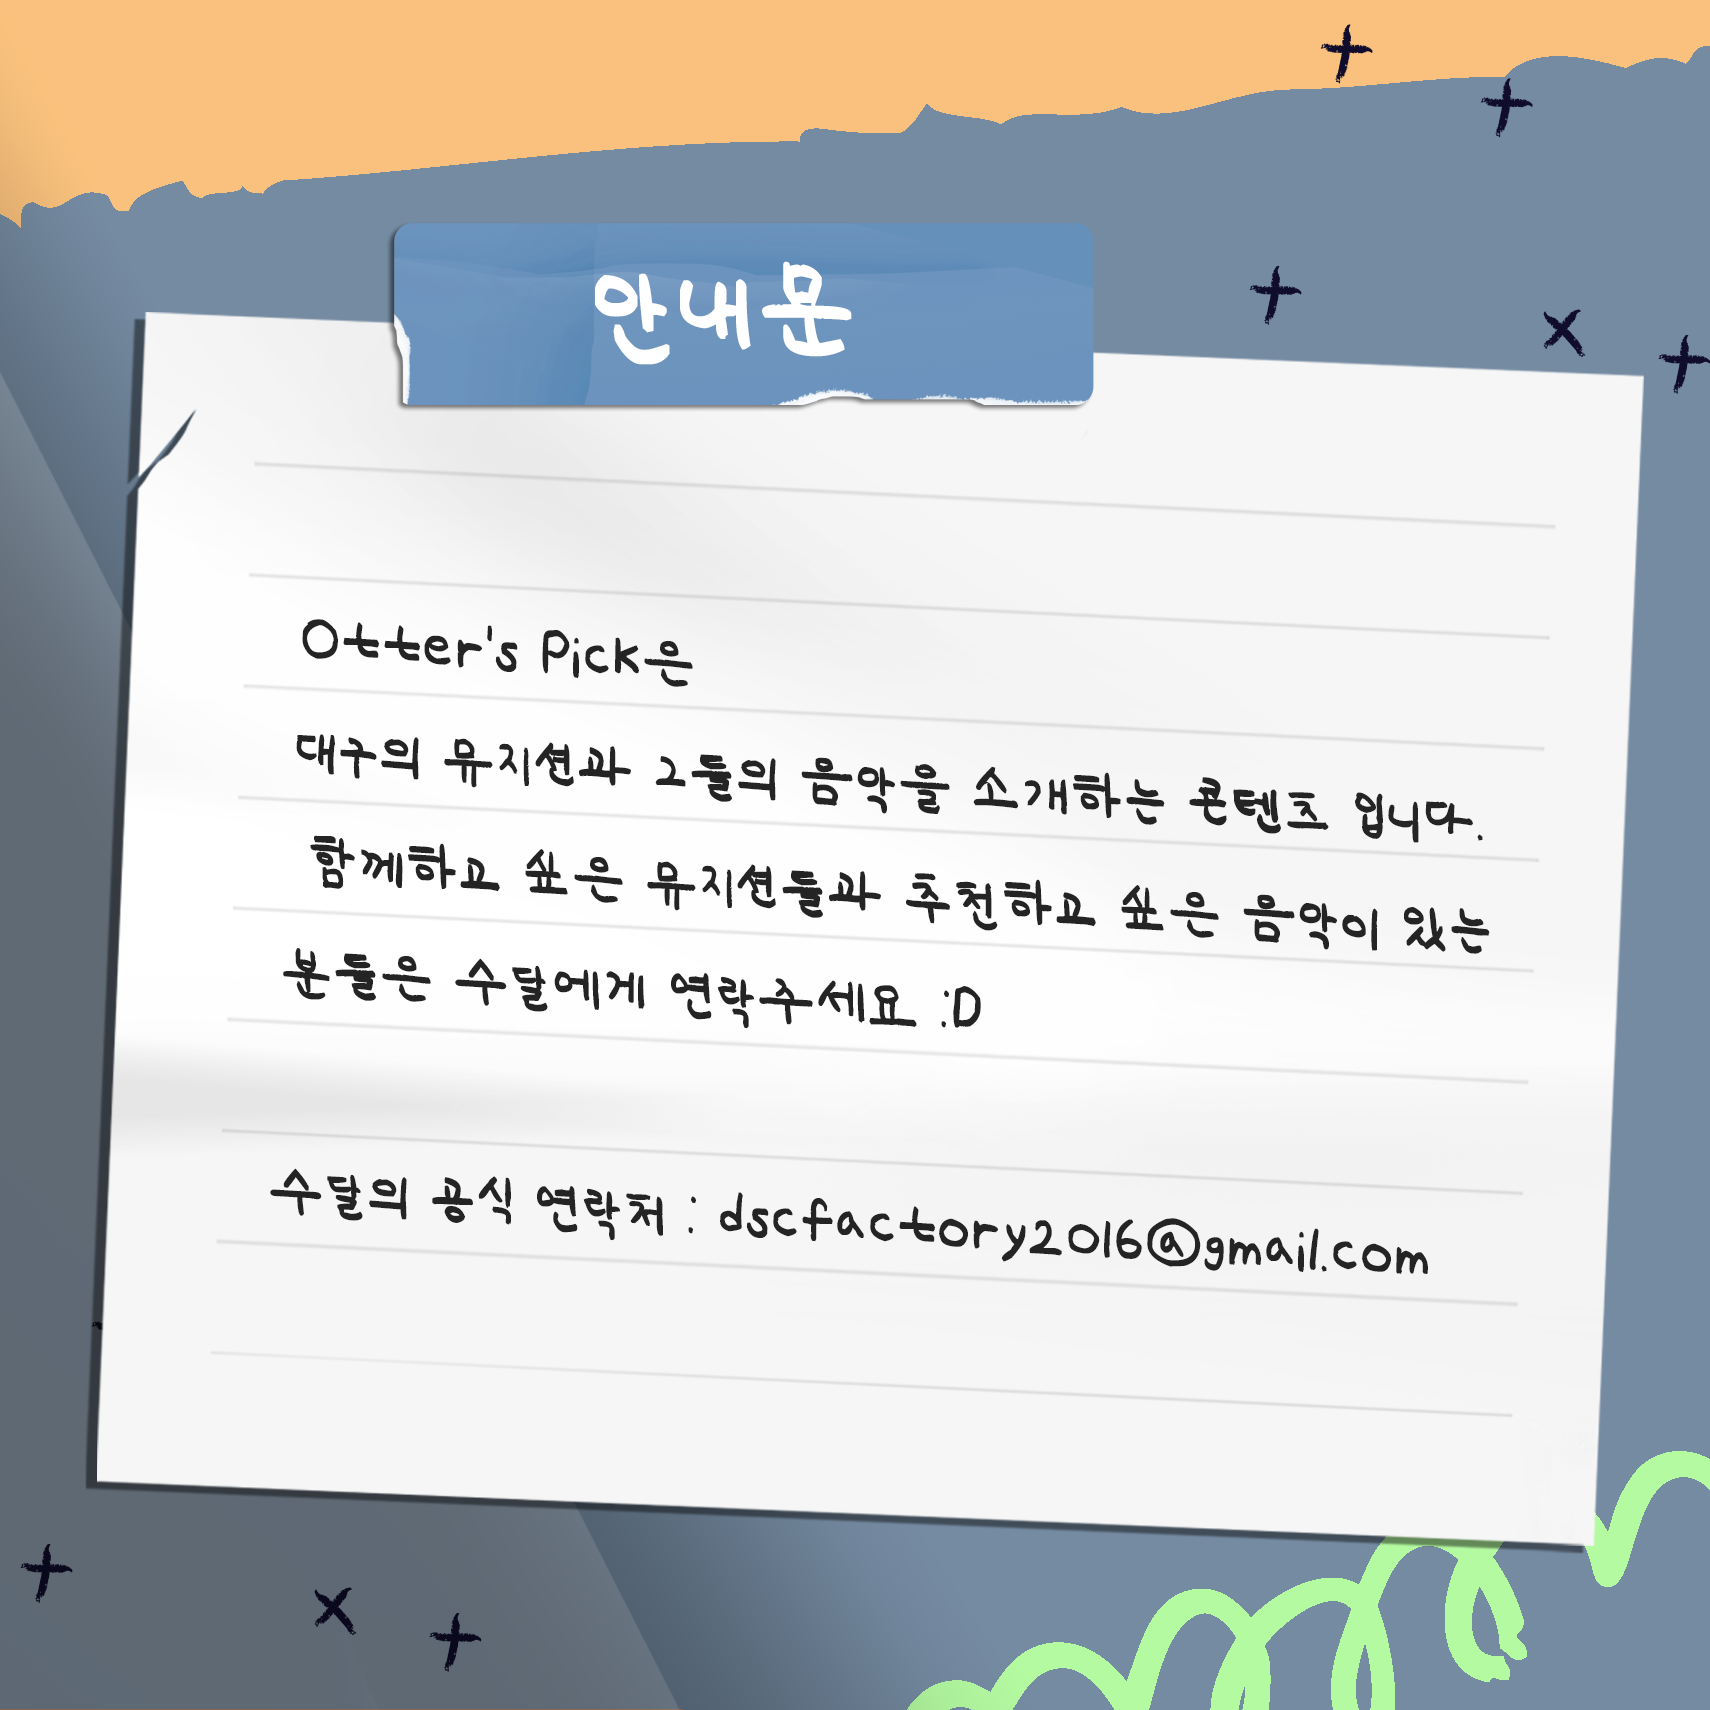 안내문
Otter's Pick은
대구의 뮤지션과 그들의 음악을 소개하는 콘텐츠 입니다.
함께하고 싶은 뮤지션들과 추천하고 싶은 음악이 있는
분들은 수달에게 연락주세요 :D
수달의 공식 연락처 : dscfactory2016@gmail.com